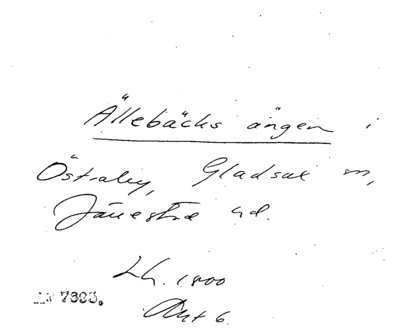 Ällebäcks ängen i
Östraby, Gladsax sn,
Järrestad hd.
1800
Akt 6.